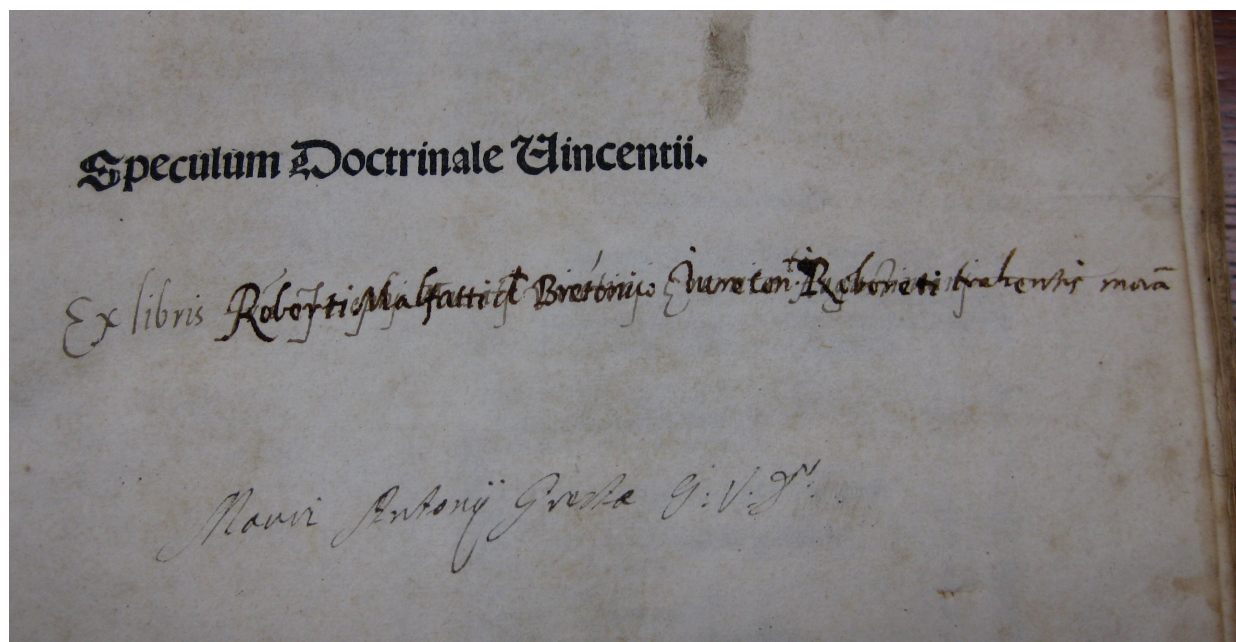 Speculum Doctrinale Vincentii.
Ex libris Roberti Malfatti Bretonico Jurecon Roboreti trahentis morã
Antonij Gresta J: V: Dr.